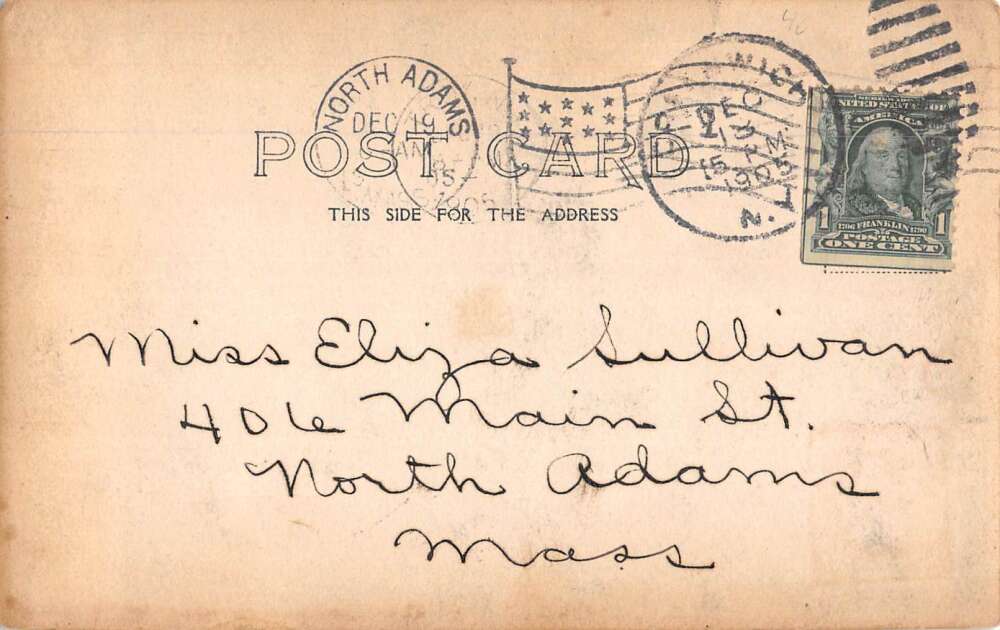 NORTH ADAMS
DEC 19
1905
DEC
1905
N.Y.
POST CARD
THIS SIDE FOR THE ADDRESS
UNITED STATES OF
AMERICA
1706 FRANKLIN 1790
1 POSTAGE 1
ONE CENT
Miss Eliza Sullivan
406 Main St.
North Adams
Mass